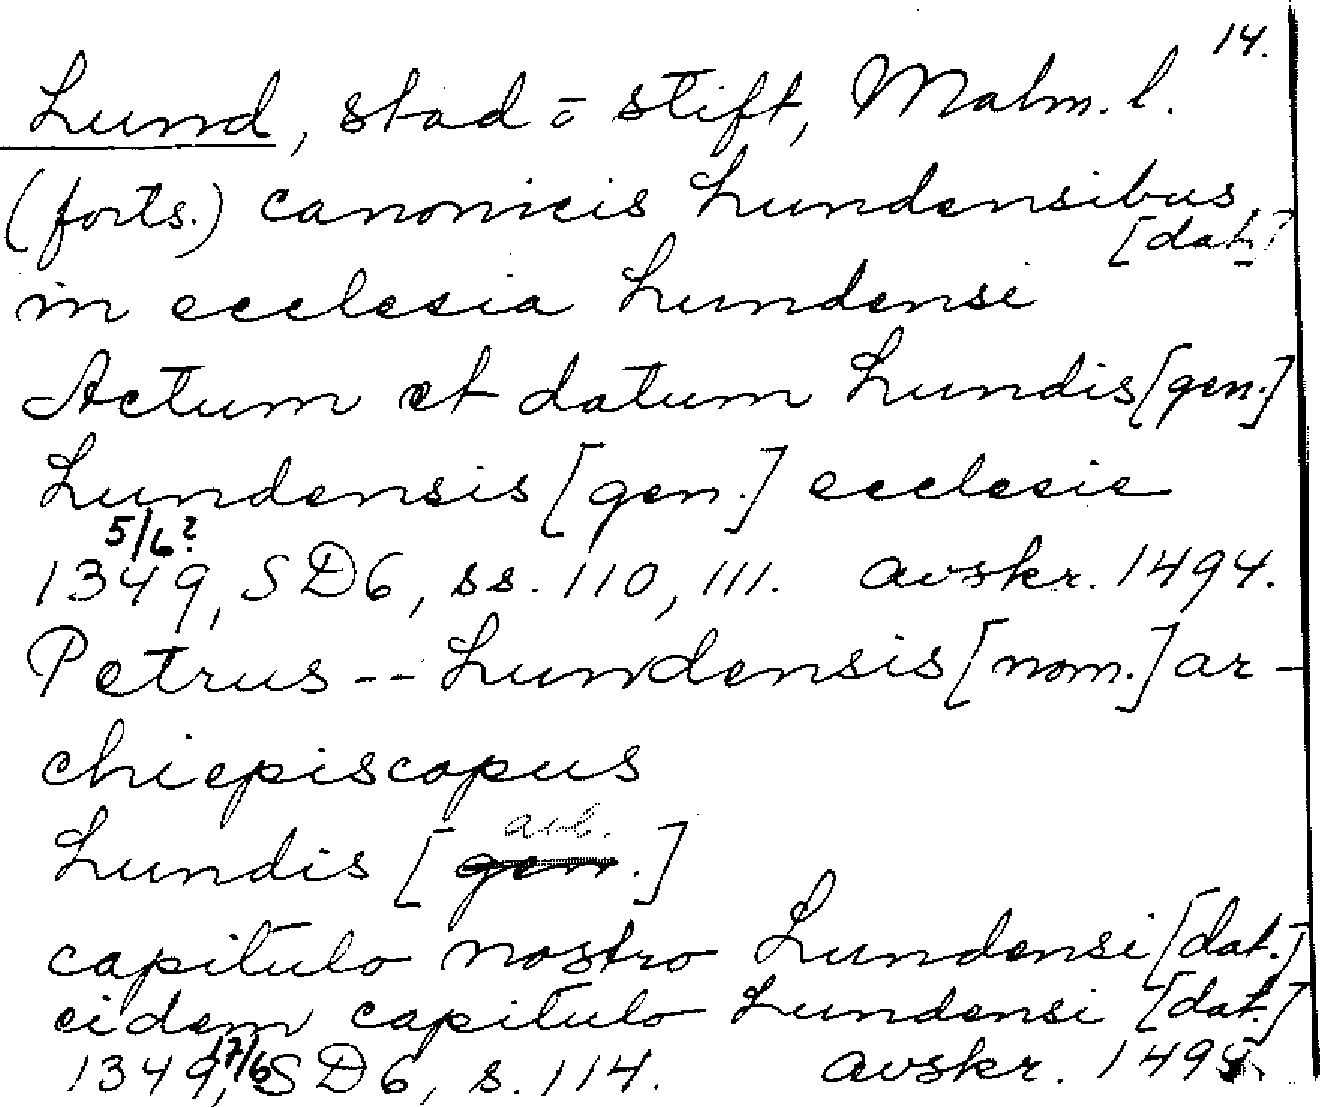 14.
Lund, stad o stift, Malm. l.
(forts.) canonicis Lundensibus
[dat.]
in ecclesia Lundensi
Actum et datum Lundis [gen.]
Lundensis [gen.] ecclesie
5/6?
1349, SD6, ss. 110, 111. avskr. 1494.
Petrus -- Lundensis [nom.] ar-
chiepiscopus
abl.
Lundis [gen.]
capitulo nostro Lundensi [dat.]
eidem capitulo Lundensi [dat.]
17/6
1349, SD6, s. 114. avskr. 1494.